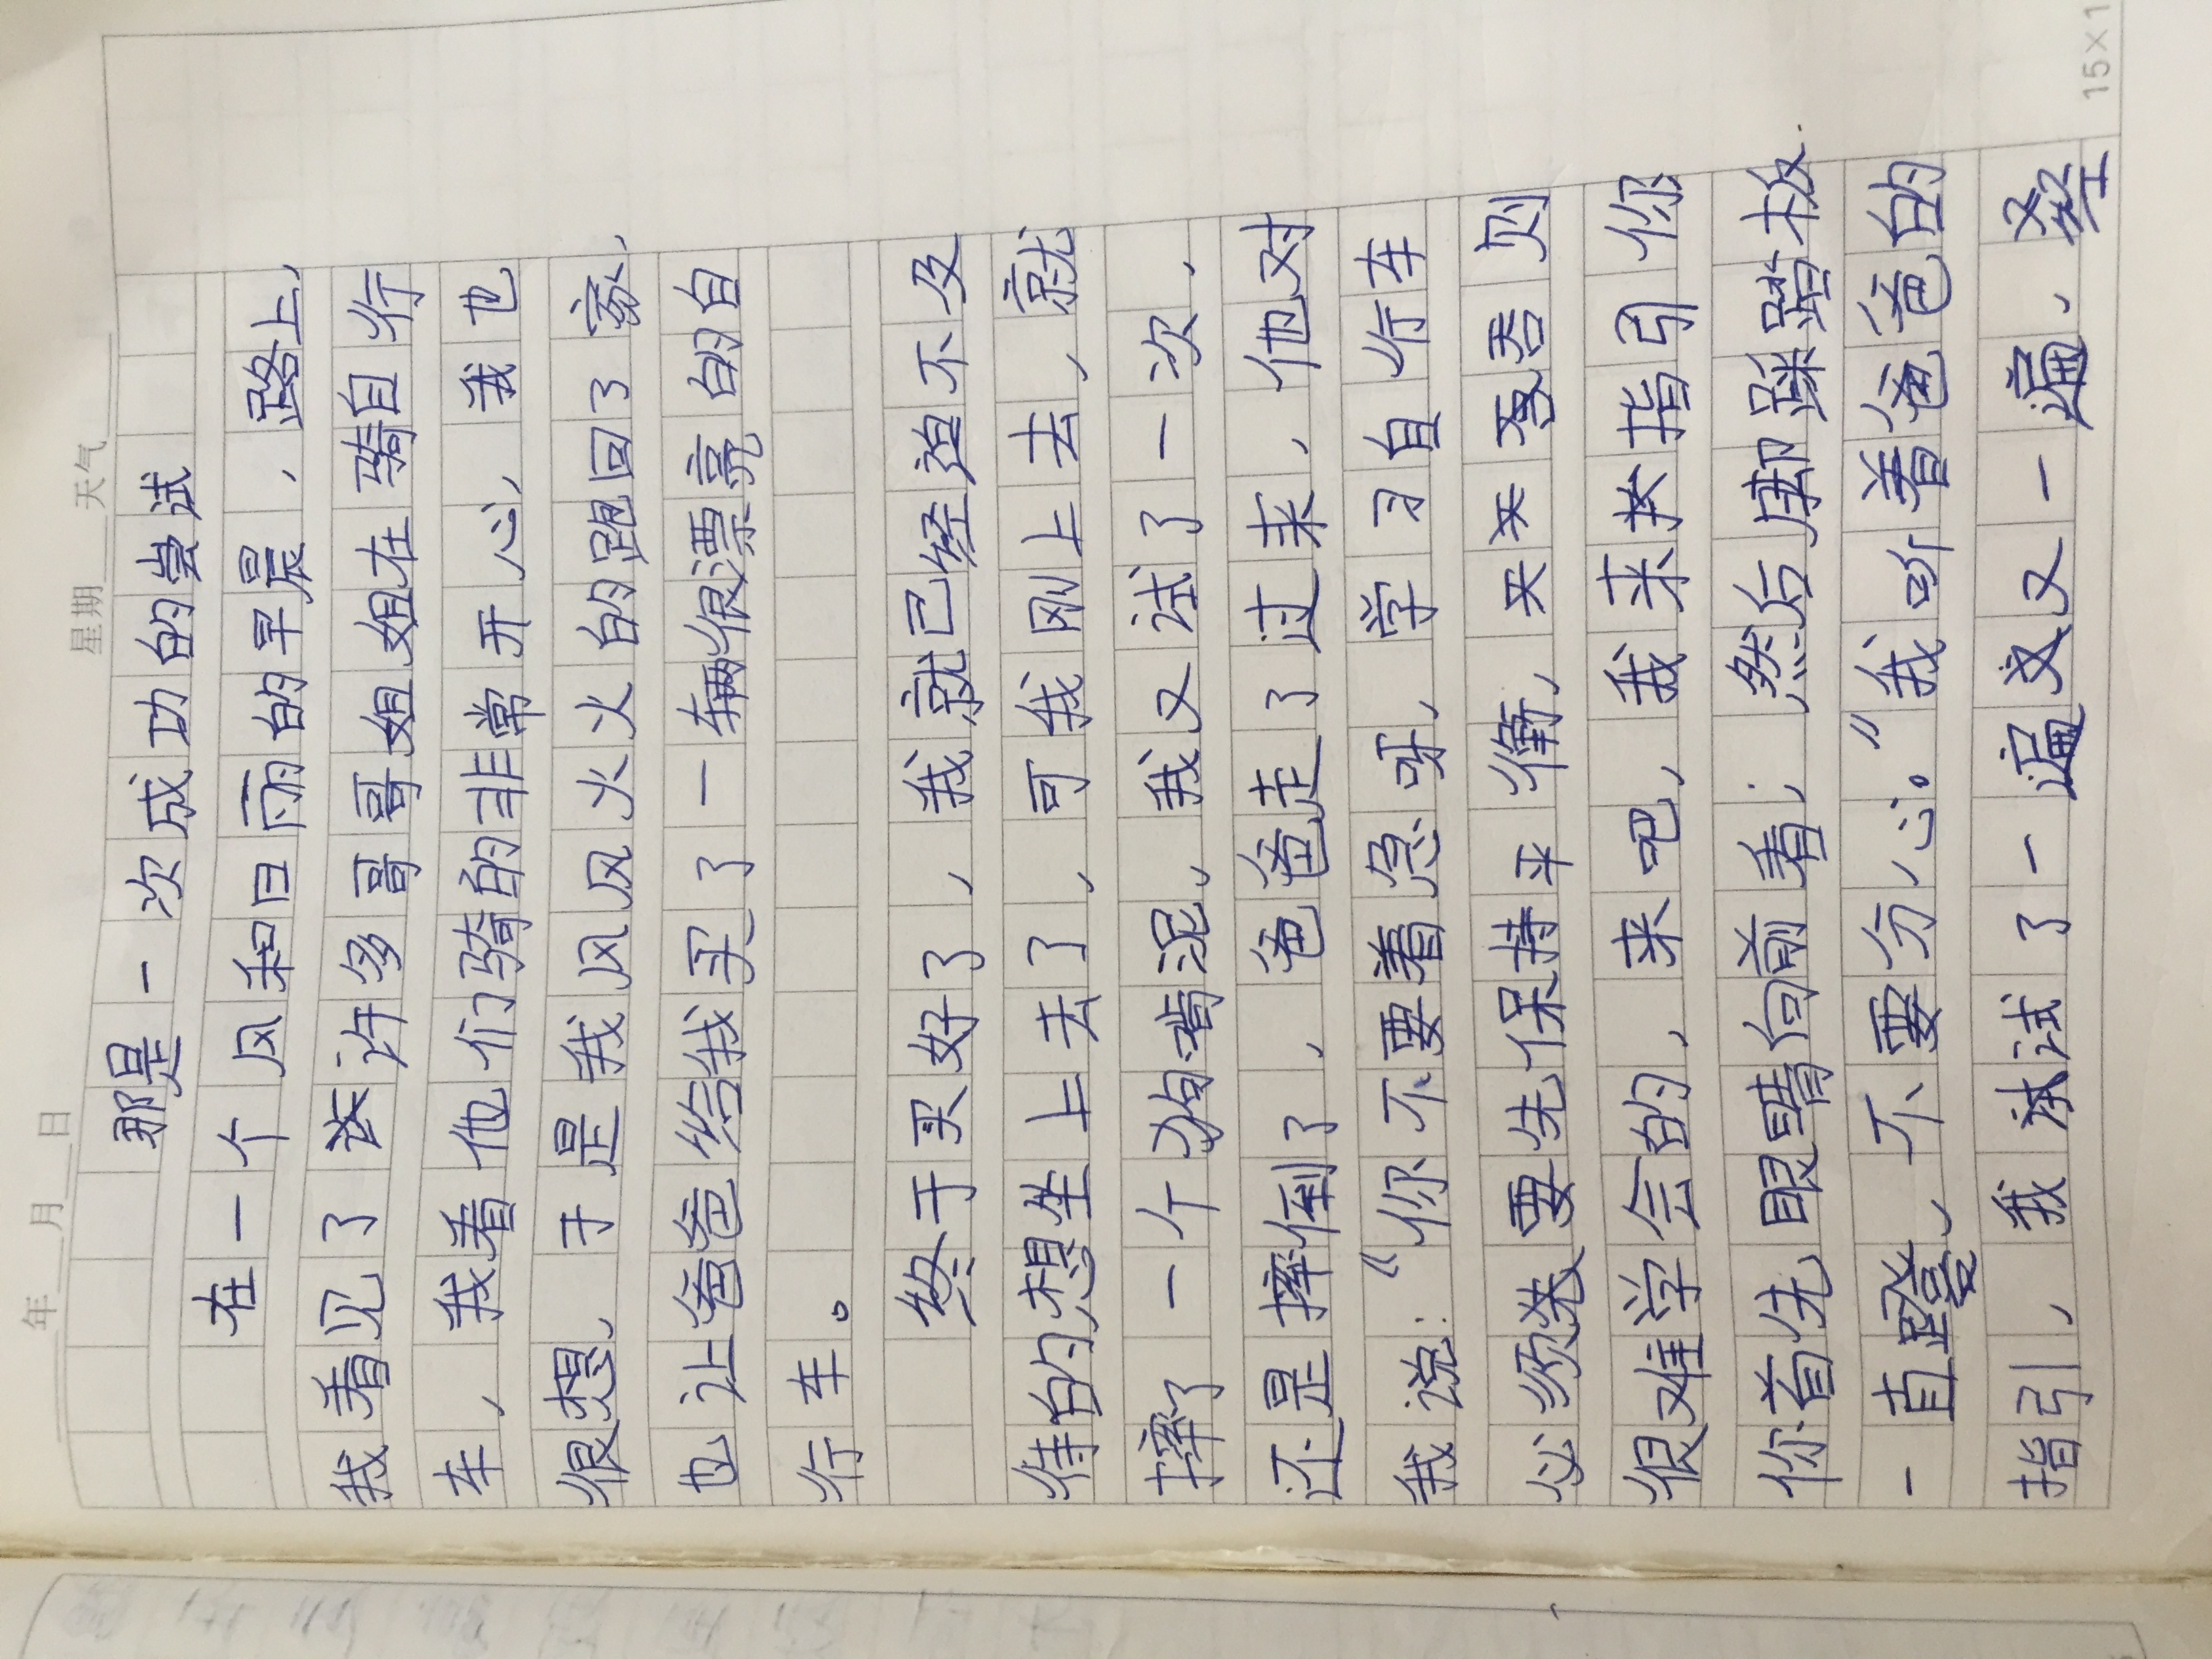 年 月 日 星期 天气
那是一次成功的尝试
在一个风和日丽的早晨，路上，
我看见了许多哥哥姐姐在骑自行
车，我看他们骑的非常开心，我也
很想，于是我风风火火的跑回了家，
也让爸爸给我买了一辆很漂亮的自
行车。
终于买好了，我就已经迫不及
待的想坐上去了，可我刚上去，就
摔了一个狗啃泥，我又试了一次，
还是摔倒了，爸爸走了过来，他对
我说：“你不要着急呀，学习自行车
必须要先保持平衡，否则
很难学会的，来吧，我来指引你
你首先眼睛向前看；然后脚踩踏板，
一直蹬，不要分心。”我听着爸爸的
指引，我试了一遍又一遍，
15×1